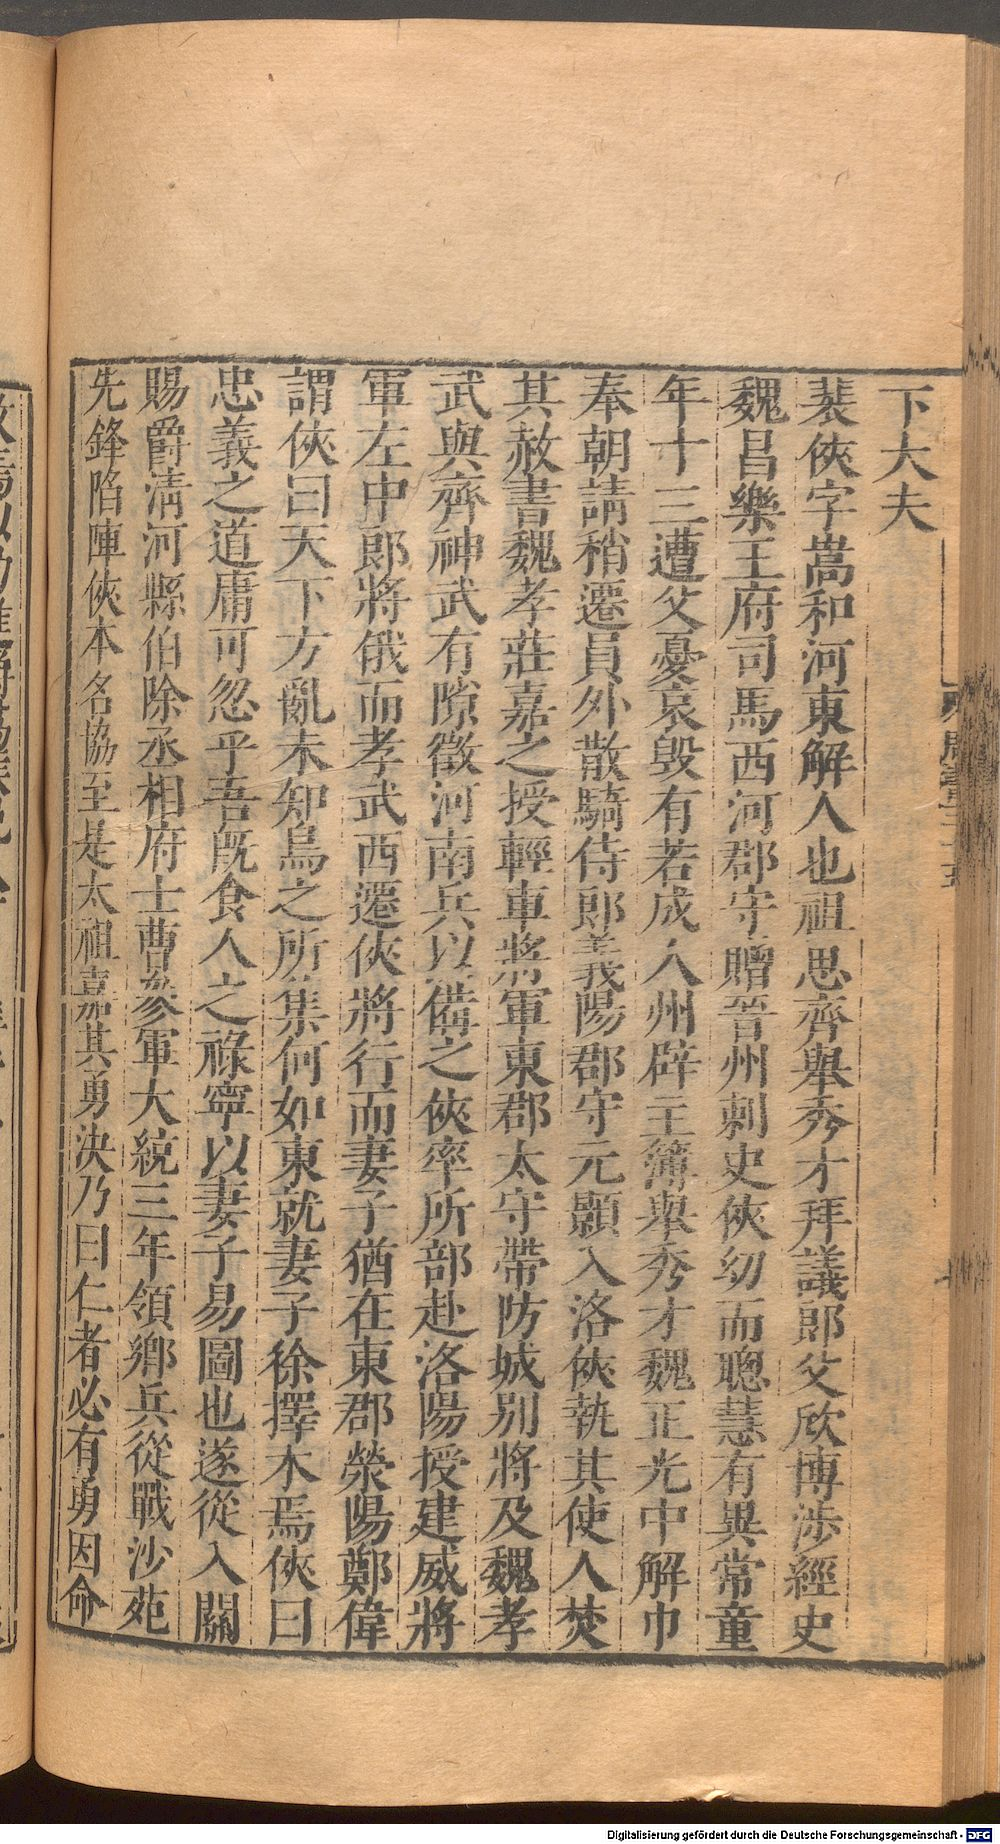 下大夫
裴俠字嵩和河東解人也祖思齊舉秀才拜議郎父欣博涉經史
魏昌樂王府司馬西河郡守贈晉州刺史俠幼而聰慧有異常童
年十三遭父憂哀毀有若成人州辟主簿舉秀才魏正光中解巾
奉朝請稍遷員外散騎侍郎義陽郡守元顥入洛俠執其使人焚
其赦書魏孝莊嘉之授輕車將軍東郡太守帶防城別將及魏孝
武與齊神武有隙徵河南兵以備之俠率所部赴洛陽授建威將
軍左中郎將俄而孝武西遷俠將行而妻子猶在東郡滎陽鄭偉
謂俠曰天下方亂未知烏之所集何如東就妻子徐擇木焉俠曰
忠義之道庸可忽乎吾旣食人之祿寧以妻子易圖也遂從入關
賜爵淸河縣伯除丞相府士曹參軍大統三年領鄉兵從戰沙苑
先鋒陷陣俠本名協至是太祖嘉其勇決乃曰仁者必有勇因命
Digitalisierung gefördert durch die Deutsche Forschungsgemeinschaft - DFG